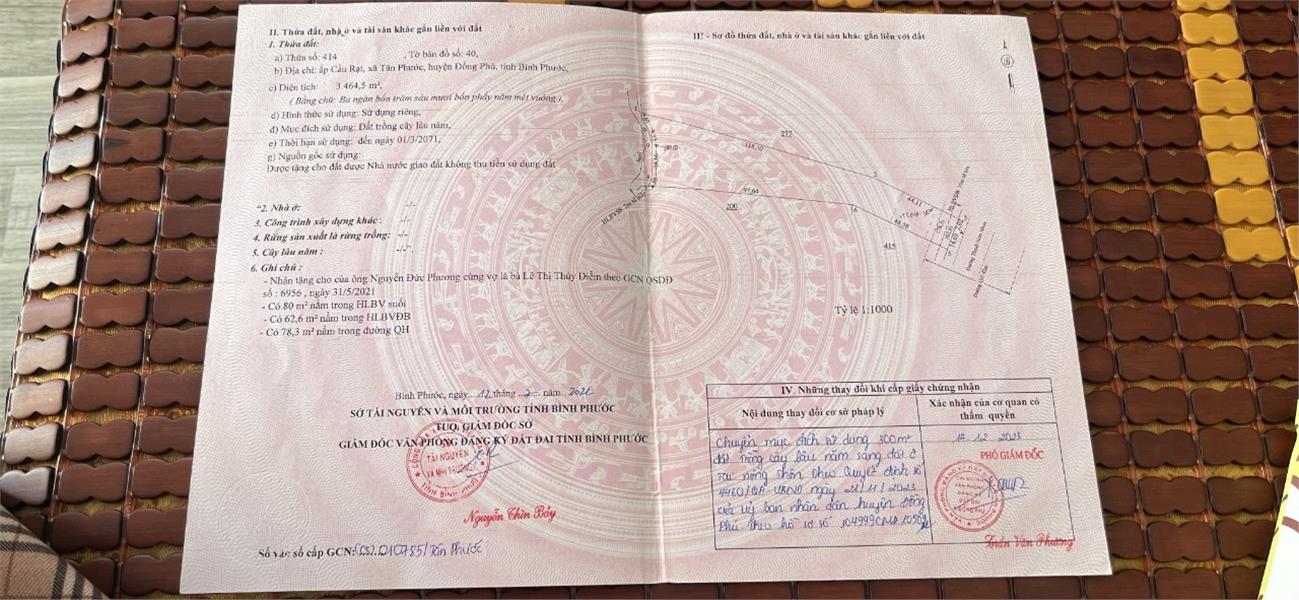 II. Thửa đất, nhà ở và tài sản khác gắn liền với đất
1. Thửa đất:
a) Thửa số: 414 , Tờ bản đồ số: 40,
b) Địa chỉ: ấp Cầu Rạt, xã Tân Phước, huyện Đồng Phú, tỉnh Bình Phước,
c) Diện tích: 3.464,5 m²,
( Bằng chữ: Ba ngàn bốn trăm sáu mươi bốn phẩy năm mét vuông ),
d) Hình thức sử dụng: Sử dụng riêng,
đ) Mục đích sử dụng: Đất trồng cây lâu năm,
e) Thời hạn sử dụng: đến ngày 01/3/2071,
g) Nguồn gốc sử dụng:
Được tặng cho đất được Nhà nước giao đất không thu tiền sử dụng đất
"2. Nhà ở: -/-
3. Công trình xây dựng khác : -/-
4. Rừng sản xuất là rừng trồng: -/-
5. Cây lâu năm : -/-"
6. Ghi chú :
- Nhận tặng cho của ông Nguyễn Đức Phương cùng vợ là bà Lê Thị Thúy Diễm theo GCN QSDĐ
số : 6956 , ngày 31/5/2021
- Có 80 m² nằm trong HLBV suối
- Có 62,6 m² nằm trong HLBVĐB
- Có 78,3 m² nằm trong đường QH
Bình Phước, ngày 12 tháng 7 năm 2021
SỞ TÀI NGUYÊN VÀ MÔI TRƯỜNG TỈNH BÌNH PHƯỚC
TUQ. GIÁM ĐỐC SỞ
GIÁM ĐỐC VĂN PHÒNG ĐĂNG KÝ ĐẤT ĐAI TỈNH BÌNH PHƯỚC
TÀI NGUYÊN
VÀ MÔI TRƯỜNG
TỈNH BÌNH PHƯỚC
Nguyễn Thìn Bảy
Số vào sổ cấp GCN: (CS) 010785/Tân Phước
III - Sơ đồ thửa đất, nhà ở và tài sản khác gắn liền với đất
222
118.50
(80.0)
2
44.11
97.64
200
6
415
HLBVSS
HLBVĐB
Đường Thôn
Tỷ lệ 1:1000
IV. Những thay đổi khi cấp giấy chứng nhận
Nội dung thay đổi cơ sở pháp lý
Xác nhận của cơ quan có
thẩm quyền
Chuyển mục đích sử dụng 300m²
đất trồng cây lâu năm sang đất ở
tại nông thôn theo Quyết định số
4460/QĐ-UBND ngày 21/11/2023
của Uỷ ban nhân dân huyện Đồng
Phú theo hồ sơ số
12 2023
PHÓ GIÁM ĐỐC
Trần Văn Phương